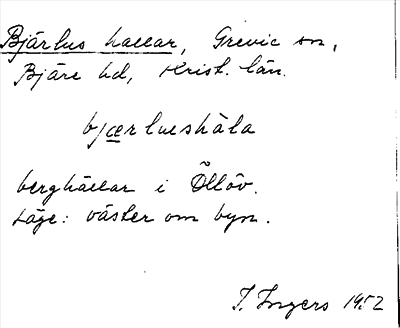 Bjärlus hallar, Grevie sn,
Bjäre hd, Krist. län.
bjærlushála
berghällar i Öllöv.
Läge: väster om byn.
I. Ingers 1952